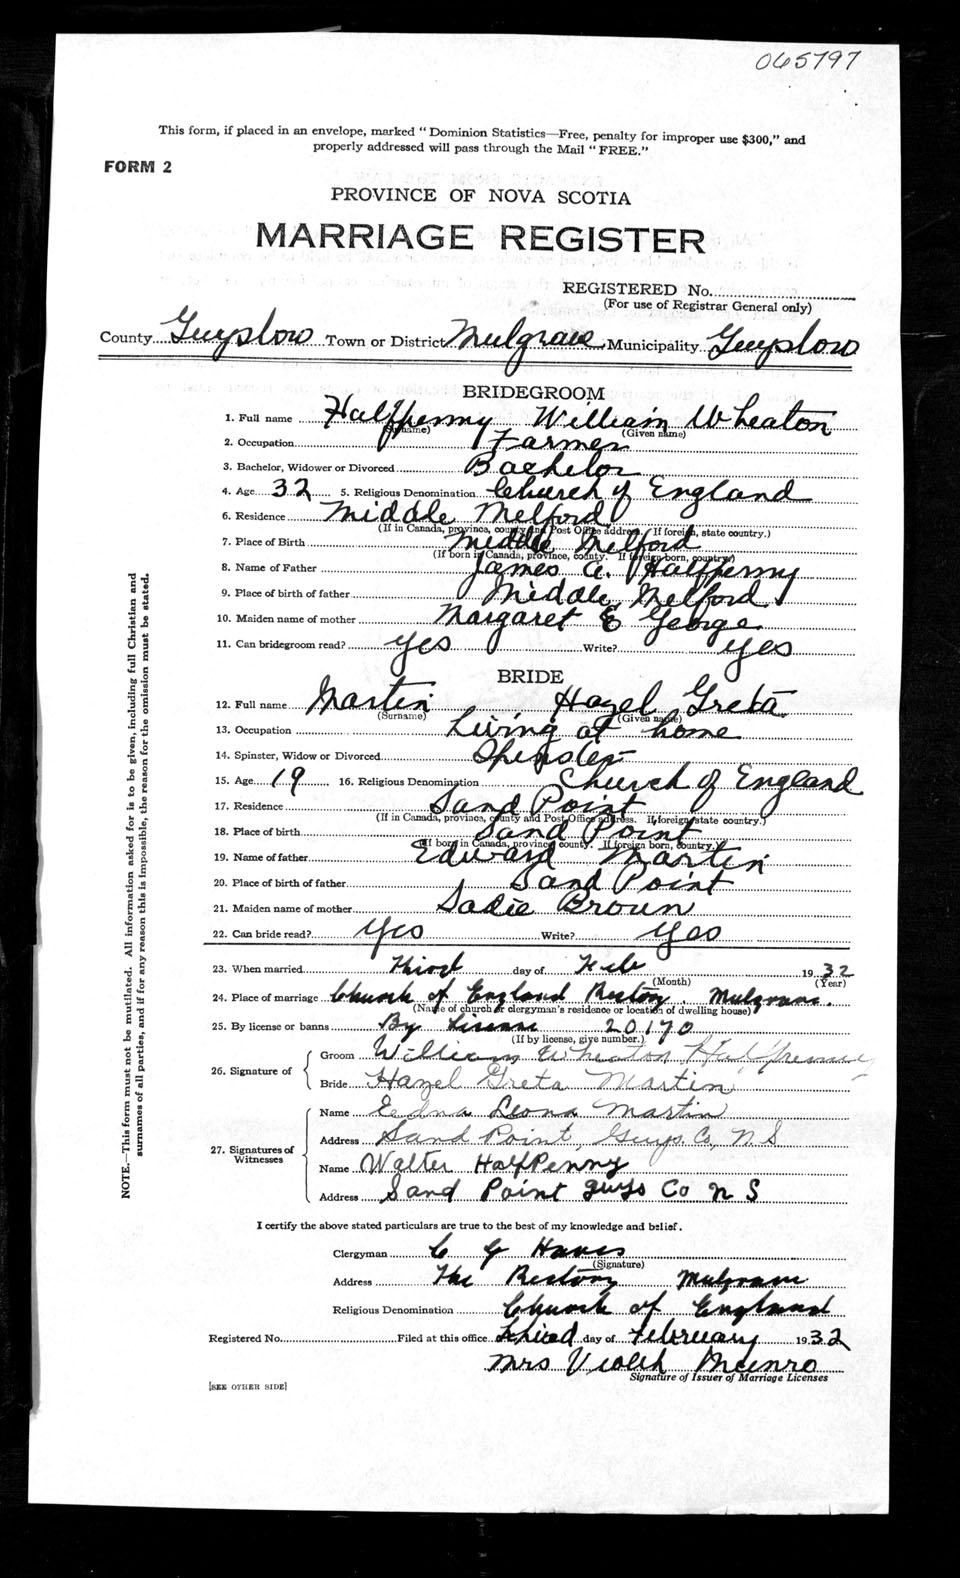 065797
This form, if placed in an envelope, marked "Dominion Statistics—Free, penalty for improper use $300," and
properly addressed will pass through the Mail "FREE."
FORM 2
PROVINCE OF NOVA SCOTIA
MARRIAGE REGISTER
REGISTERED No.
(For use of Registrar General only)
County Guysboro Town or District Mulgrave Municipality Guysboro
BRIDEGROOM
1. Full name Halfpenny William Wheaton
(Surname) (Given name)
2. Occupation Farmer
3. Bachelor, Widower or Divorced Bachelor
4. Age 32 5. Religious Denomination Church of England
6. Residence Middle Melford
(If in Canada, province, county and Post Office address. If foreign, state country.)
7. Place of Birth Middle Melford
(If born in Canada, province, county. If foreign born, country.)
8. Name of Father James A. Halfpenny
9. Place of birth of father Middle Melford
10. Maiden name of mother Margaret E George
11. Can bridegroom read? Yes Write? Yes
BRIDE
12. Full name Martin Hazel Greta
(Surname) (Given name)
13. Occupation Living at home
14. Spinster, Widow or Divorced Spinster
15. Age 19 16. Religious Denomination Church of England
17. Residence Sand Point
(If in Canada, province, county and Post Office address. If foreign, state country.)
18. Place of birth Sand Point
(If born in Canada, province, county. If foreign born, country.)
19. Name of father Edward Martin
20. Place of birth of father Sand Point
21. Maiden name of mother Sadie Broun
22. Can bride read? Yes Write? Yes
23. When married Third day of Feb 1932
(Month) (Year)
24. Place of marriage Church of England Rectory. Mulgrave.
(Name of church or clergyman's residence or location of dwelling house)
25. By license or banns By License 20170
(If by license, give number.)
26. Signature of
Groom William Wheaton Halfpenny
Bride Hazel Greta Martin
27. Signatures of Witnesses
Name Edna Leona Martin
Address Sand Point, Guys. Co, N.S
Name Walter HalfPenny
Address Sand Point guys Co N S
I certify the above stated particulars are true to the best of my knowledge and belief.
Clergyman C G
(Signature)
Address The Rectory Mulgrave
Religious Denomination Church of England
Registered No. Filed at this office Third day of February 1932
Mrs Violet Munro
Signature of Issuer of Marriage Licenses
[SEE OTHER SIDE]
NOTE.—This form must not be mutilated. All information asked for is to be given, including full Christian and
surnames of all parties, and if for any reason this is impossible, the reason for the omission must be stated.